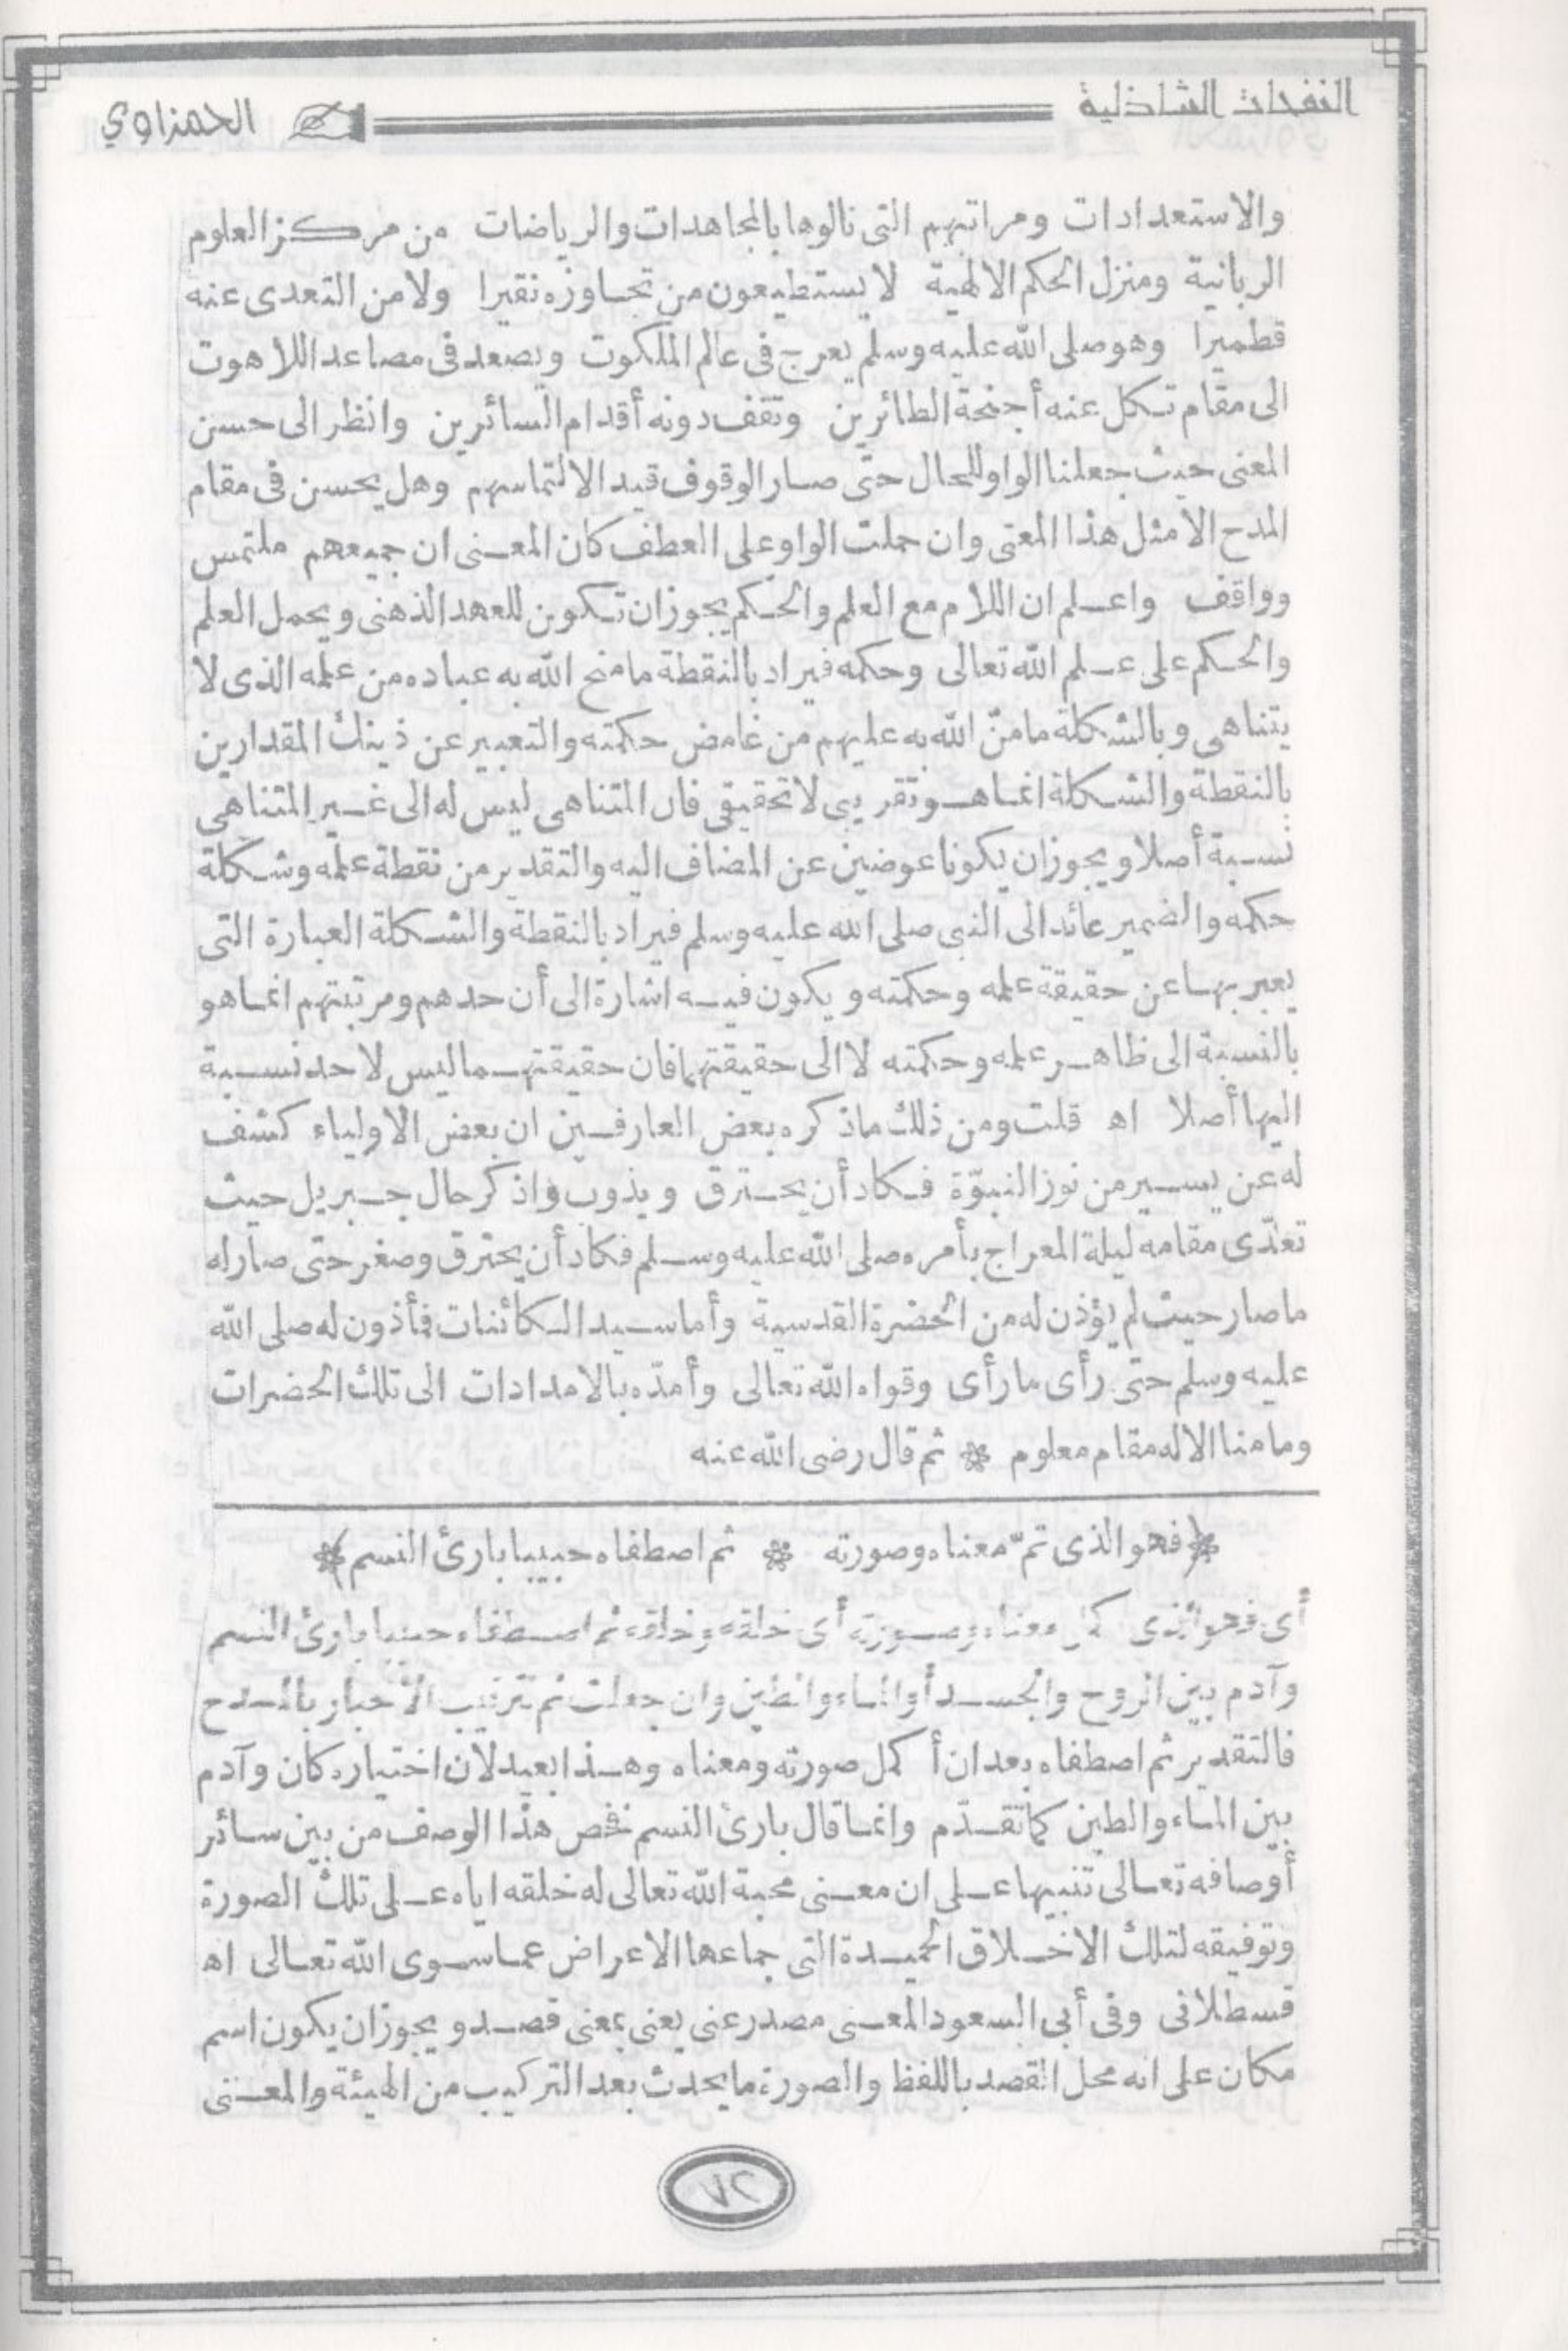 النفحات الشاذلية الحمزاوي
والاستعدادات ومراتبهم التى نالوها بالمجاهدات والرياضات من مركز العلوم
الربانية ومنزل الحكم الالهية لا يستطيعون من تجاوزه نقيرا ولا من التعدى عنه
قطميرا وهو صلى الله عليه وسلم يعرج فى عالم الملكوت ويصعد فى مصاعد اللاهوت
الى مقام تكل عنه أجنحة الطائرين وتقف دونه أقدام السائرين وانظر الى حسن
المعنى حيث جعلنا الواو للحال حتى صار الوقوف قيد الالتماسهم وهل يحسن فى مقام
المدح الا مثل هذا المعنى وان حملت الواو على العطف كان المعنى ان جميعهم ملتمس
وواقف واعلم ان اللام مع العلم والحكم يجوز ان تكون للعهد الذهنى ويحمل العلم
والحكم على علم الله تعالى وحكمه فيراد بالنقطة ما منح الله به عباده من علمه الذى لا
يتناهى وبالشكلة ما منّ الله به عليهم من غامض حكمته والتعبير عن ذينك المقدارين
بالنقطة والشكلة انما هو تقريبى لا تحقيقى فان المتناهى ليس له الى غير المتناهى
نسبة أصلا ويجوز ان يكونا عوضين عن المضاف اليه والتقدير من نقطة علمه وشكلة
حكمه والضمير عائد الى النبى صلى الله عليه وسلم فيراد بالنقطة والشكلة العبارة التى
يعبر بها عن حقيقة علمه وحكمته ويكون فيه اشارة الى أن حدهم ومرتبتهم انما هو
بالنسبة الى ظاهر علمه وحكمته لا الى حقيقتهما فان حقيقتهما ليس لاحد نسبة
اليها أصلا اه قلت ومن ذلك ما ذكره بعض العارفين ان بعض الاولياء كشف
له عن يسير من نور النبوّة فكاد أن يحترق ويذوب واذكر حال جبريل حيث
تعدّى مقامه ليلة المعراج بأمره صلى الله عليه وسلم فكاد أن يحترق وصغر حتى صار له
ما صار حيث لم يؤذن له من الحضرة القدسية وأما سيد الكائنات فأذون له صلى الله
عليه وسلم حتى رأى ما رأى وقواه الله تعالى وأمدّه بالامدادات الى تلك الحضرات
وما منا الا له مقام معلوم * ثم قال رضى الله عنه
(فهو الذى تمّ معناه وصورته * ثم اصطفاه حبيبا بارئ النسم)
أى فهو الذى كمل معناه وصورته أى خلقه وخلقه ثم اصطفاه حبيبا بارئ النسم
وآدم بين الروح والجسد أو الماء والطين وان جعلت ثم لترتيب الأخبار بالمدح
فالتقدير ثم اصطفاه بعد ان أكمل صورته ومعناه وهذا بعيد لان اختياره كان وآدم
بين الماء والطين كما تقدّم وانما قال بارئ النسم فخص هذا الوصف من بين سائر
أوصافه تعالى تنبيها على ان معنى محبة الله تعالى له خلقه اياه على تلك الصورة
وتوفيقه لتلك الاخلاق الحميدة التى جماعها الاعراض عما سوى الله تعالى اه
قسطلانى وفى أبى السعود المعنى مصدر عنى يعنى بمعنى قصد ويجوز ان يكون اسم
مكان على انه محل القصد باللفظ والصورة ما يحدث بعد التركيب من الهيئة والمعنى